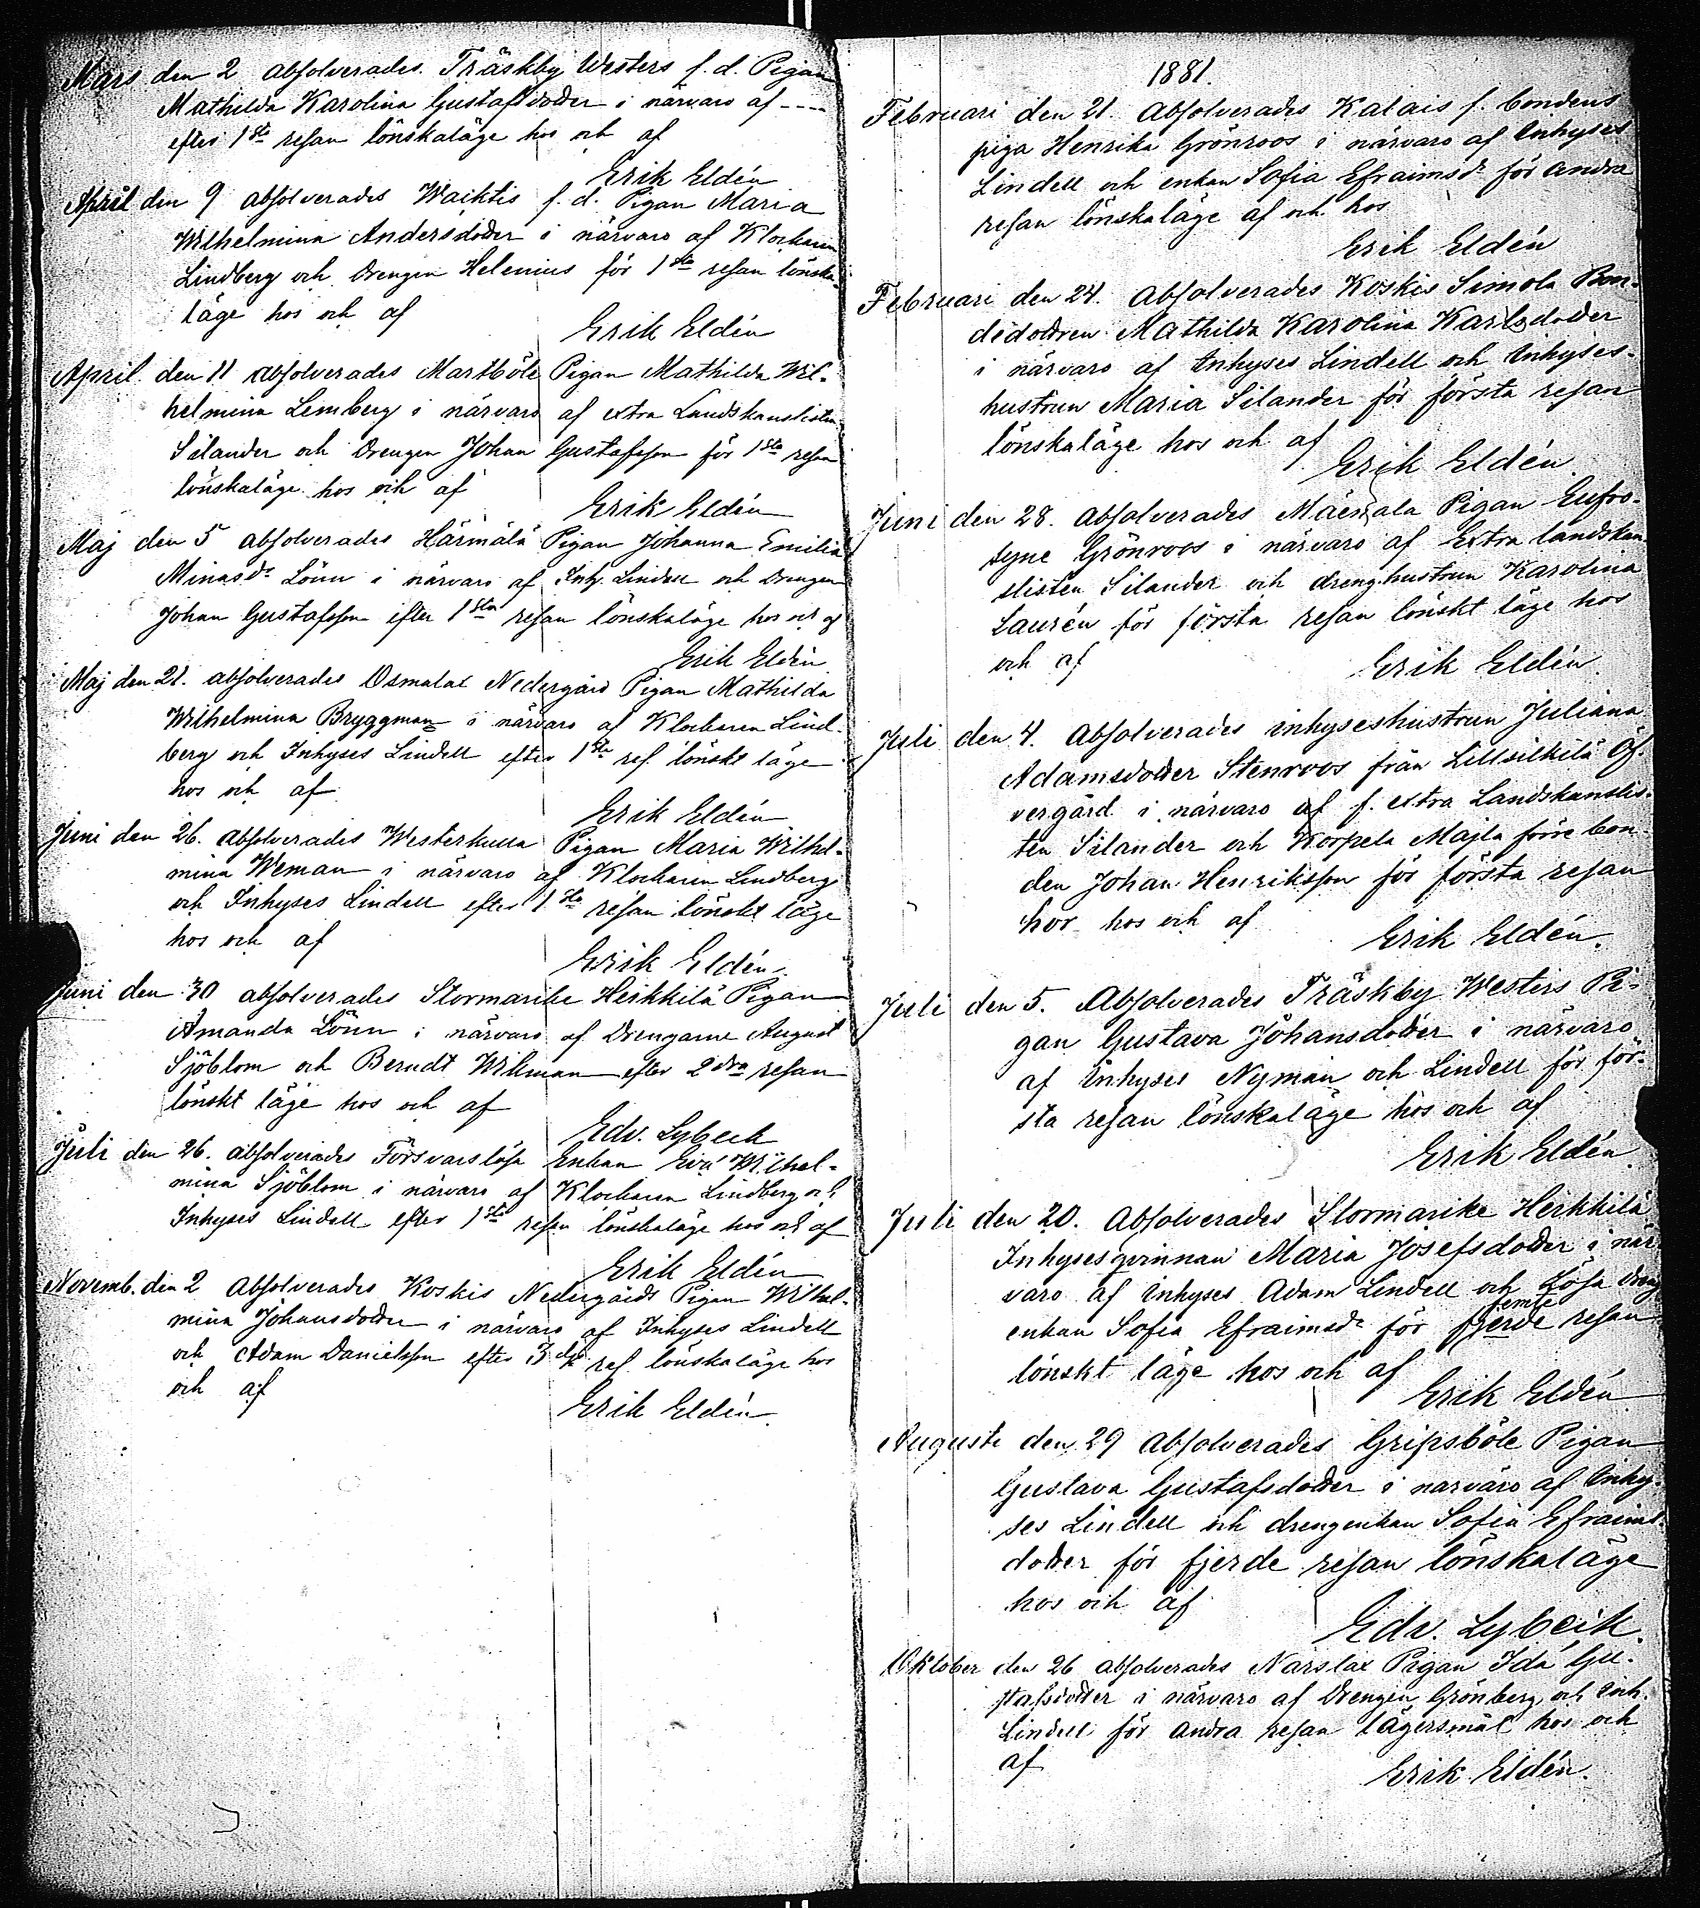 Mars den 2 absolverades Träskby Westers f. d. Pigan
Mathilda Karolina Gustafsdotter i närvaro af ----
efter 1sta resan lönskaläge hos och af
Erik Eldén
April den 9 absolverades Waiktis f. d. Pigan Maria
Wilhelmina Andersdotter i närvaro af Klockaren
Lindberg och Drengen Helenius för 1sta resan lönska-
läge hos och af
Erik Eldén
April den 11 absolverades Martböle Pigan Mathilda Wil-
helmina Lemberg i närvaro af extra Landskanslisten
Silander och Drengen Johan Gustafsson för 1sta resan
lönskaläge hos och af
Erik Eldén
Maj den 5 absolverades Härmälä Pigan Johanna Emilia
Minasdr Lönn i närvaro af Inhy. Lindell och Drengen
Johan Gustafsson efter 1sta resan lönskaläge hos och af
Erik Eldén
Maj den 21. absolverades Osmalax Nedergård Pigan Mathilda
Wilhelmina Bryggman i närvaro af Klockaren Lind-
berg och Inhyses Lindell efter 1sta res. lönskt läge
hos och af
Erik Eldén
Juni den 26. absolverades Westerkulla Pigan Maria Wilhel-
mina Weman i närvaro af Klockaren Lindberg
och Inhyses Lindell efter 1sta resan lönskt läge
hos och af
Erik Eldén.
Juni den 30 absolverades Stormarike Heikkilä Pigan
Amanda Lönn i närvaro af Drengarne August
Sjöblom och Berndt Willman efter 2dra resan
lönskt läge hos och af
Edv. Lybeck
Juli den 26. absolverades Försvarslösa Enkan Eva Wilhel-
mina Sjöblom i närvaro af Klockaren Lindberg och
Inhyses Lindell efter 1sta resan lönskaläge hos och af
Erik Eldén
Novemb. den 2 absolverades Koskis Nedergårds Pigan Wilhel-
mina Johansdotter i närvaro af Inhyses Lindell
och Adam Danielsson efter 3dje res. lönskaläge hos
och af
Erik Eldén.
1881.
Februari den 21. Absolverades Kalais f. bondens
piga Henrika Grönroos i närvaro af Inhyses
Lindell och enkan Sofia Efraimsdr för andra
resan lönskaläge af och hos
Erik Eldén
Februari den 24. Absolverades Koskis Simola Bon-
dedottren Mathilda Karolina Karlsdotter
i närvaro af Inhyses Lindell och Inhyses-
hustrun Maria Silander för första resan
lönskaläge hos och af
Erik Eldén.
Juni den 28. absolverades Mäenala Pigan Eufro-
syne Grönroos i närvaro af Extra landskan-
slisten Silander och dreng.hustrun Karolina
Laurén för första resan lönskt läge hos
och af
Erik Eldén.
Juli den 4. Absolverades inhyseshustrun Juliana
Adamsdotter Stenroos från Lillsilkilä Öf-
vergård i närvaro af f. extra Landskanslis-
ten Silander och Korpela Majla förre bon-
den Johan Henriksson för första resan
hor hos och af
Erik Eldén.
Juli den 5. Absolverades Träskby Westers Pi-
gan Gustava Johansdotter i närvaro
af Inhyses Nyman och Lindell för för-
sta resan lönskaläge hos och af
Erik Eldén.
Juli den 20. Absolverades Stormarike Heikkilä
Inhysesqvinnan Maria Josefsdotter i när-
varo af Inhyses Adam Lindell och Lösa dreng
enkan Sofia Efraimsdr för fjerde femte resan
lönskt läge hos och af
Erik Eldén
Augusti den 29 absolverades Gripsböle Pigan
Gustava Gustafsdotter i närvaro af Inhy-
ses Lindell och drengenkan Sofia Efraims-
dotter för fjerde resan lönskaläge
hos och af
Edv. Lybeck.
Oktober den 26 absolverades Narslax Pigan Ida Gu-
stafsdotter i närvaro af Drengen Grönberg och Inh.
Lindell för andra resan lägersmål hos och
af
Erik Eldén.